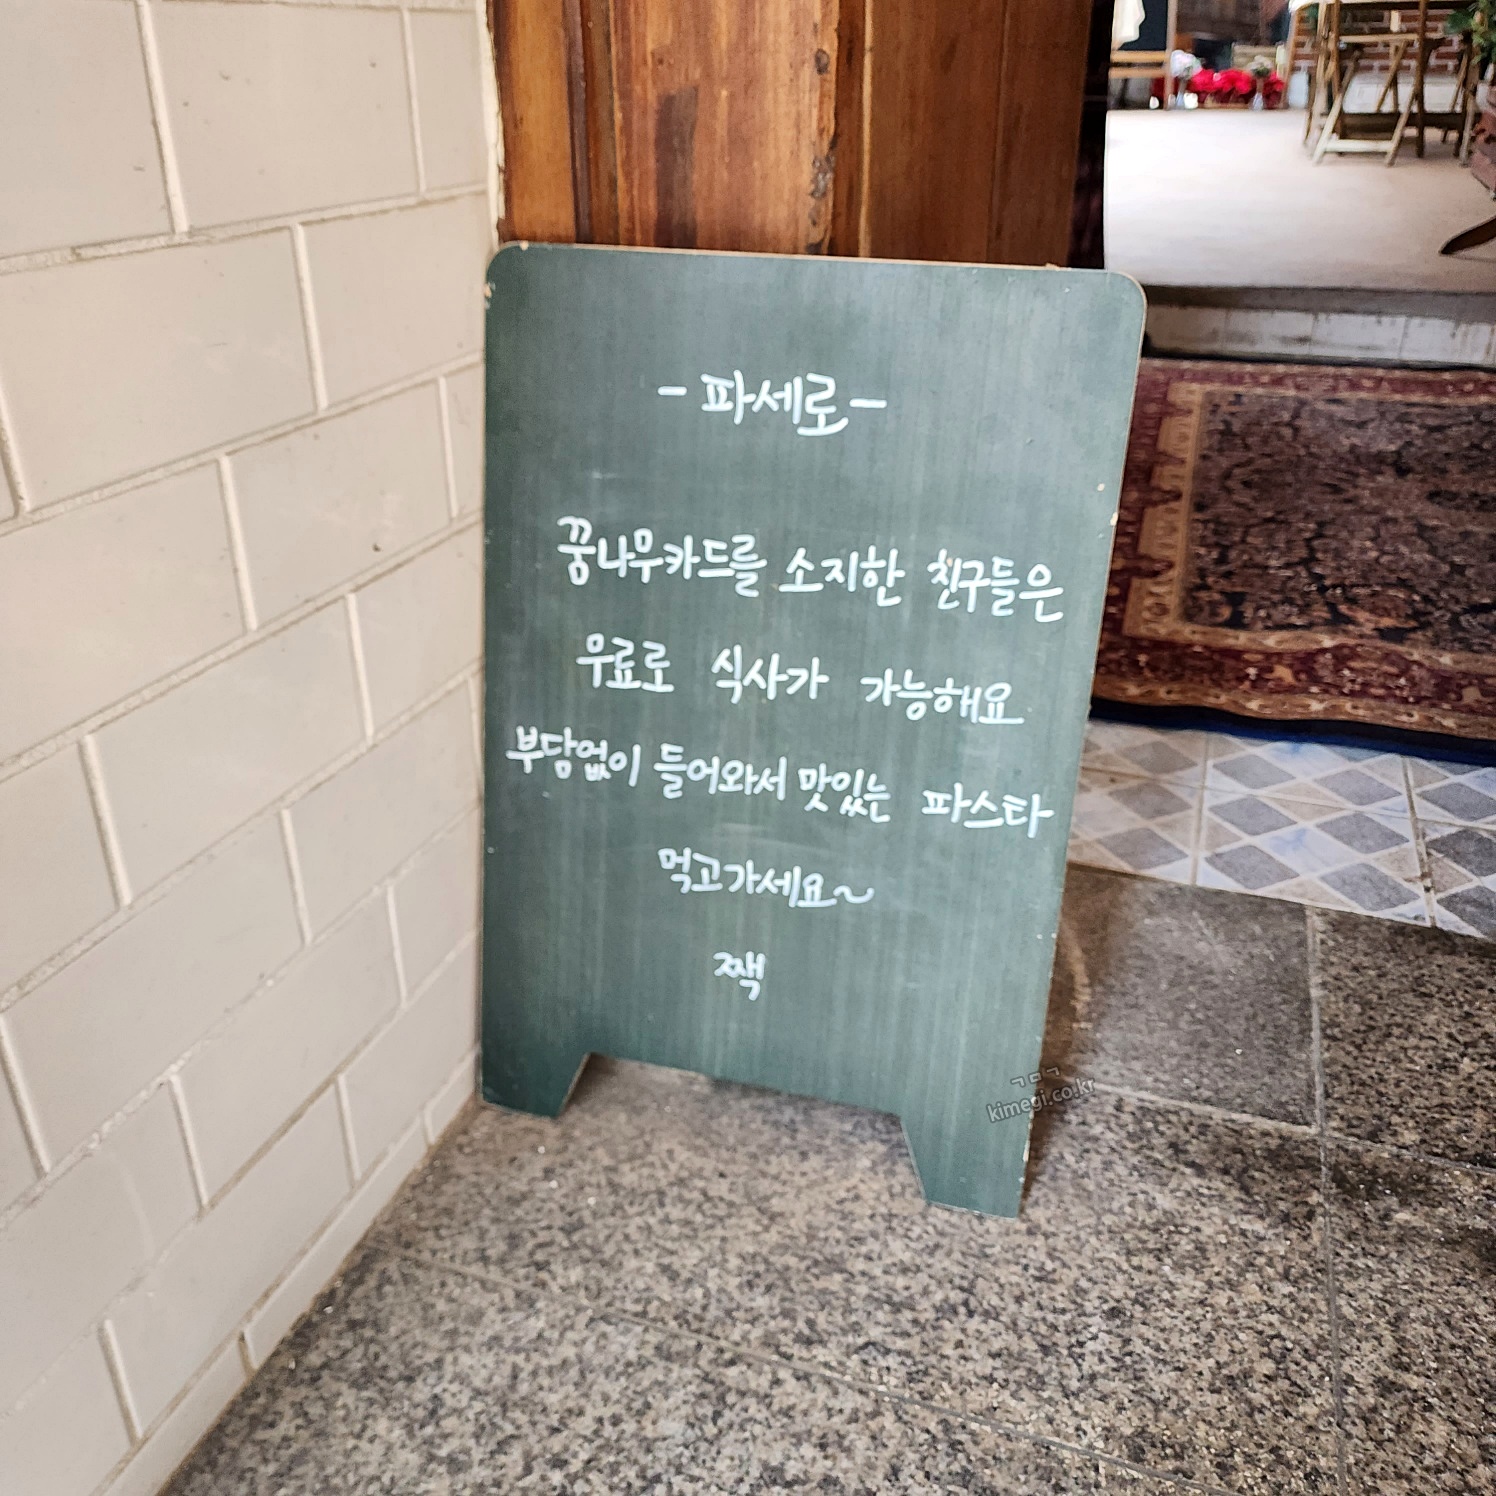 - 파세로 -
꿈나무카드를 소지한 친구들은
무료로 식사가 가능해요
부담없이 들어와서 맛있는 파스타
먹고가세요~
ㄱㅁㄱ
kimegi.co.kr